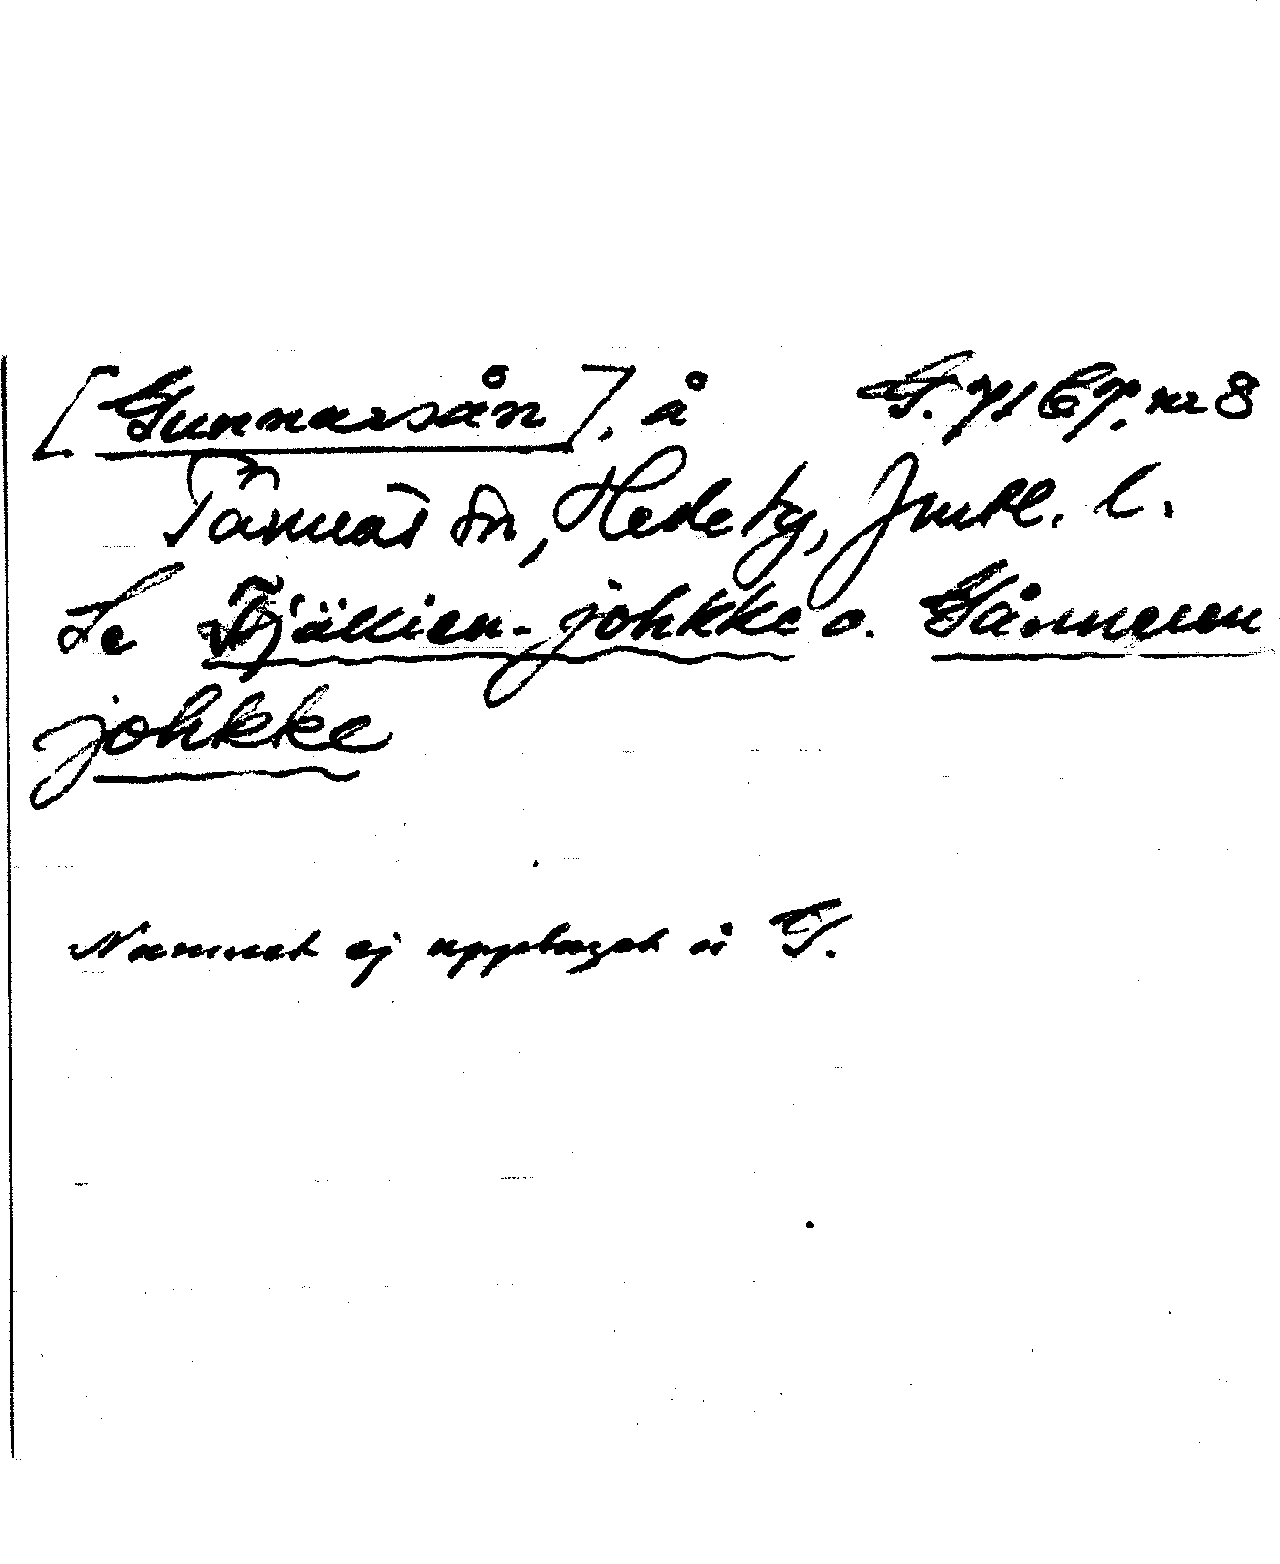 [Gunnarsån], å G. 7167. nr 8
Tännäs sn, Hede tg, Jmtl. l.
Se Tjällien-johkke o. Gånneren
johkke
Namnet ej upptaget å G.